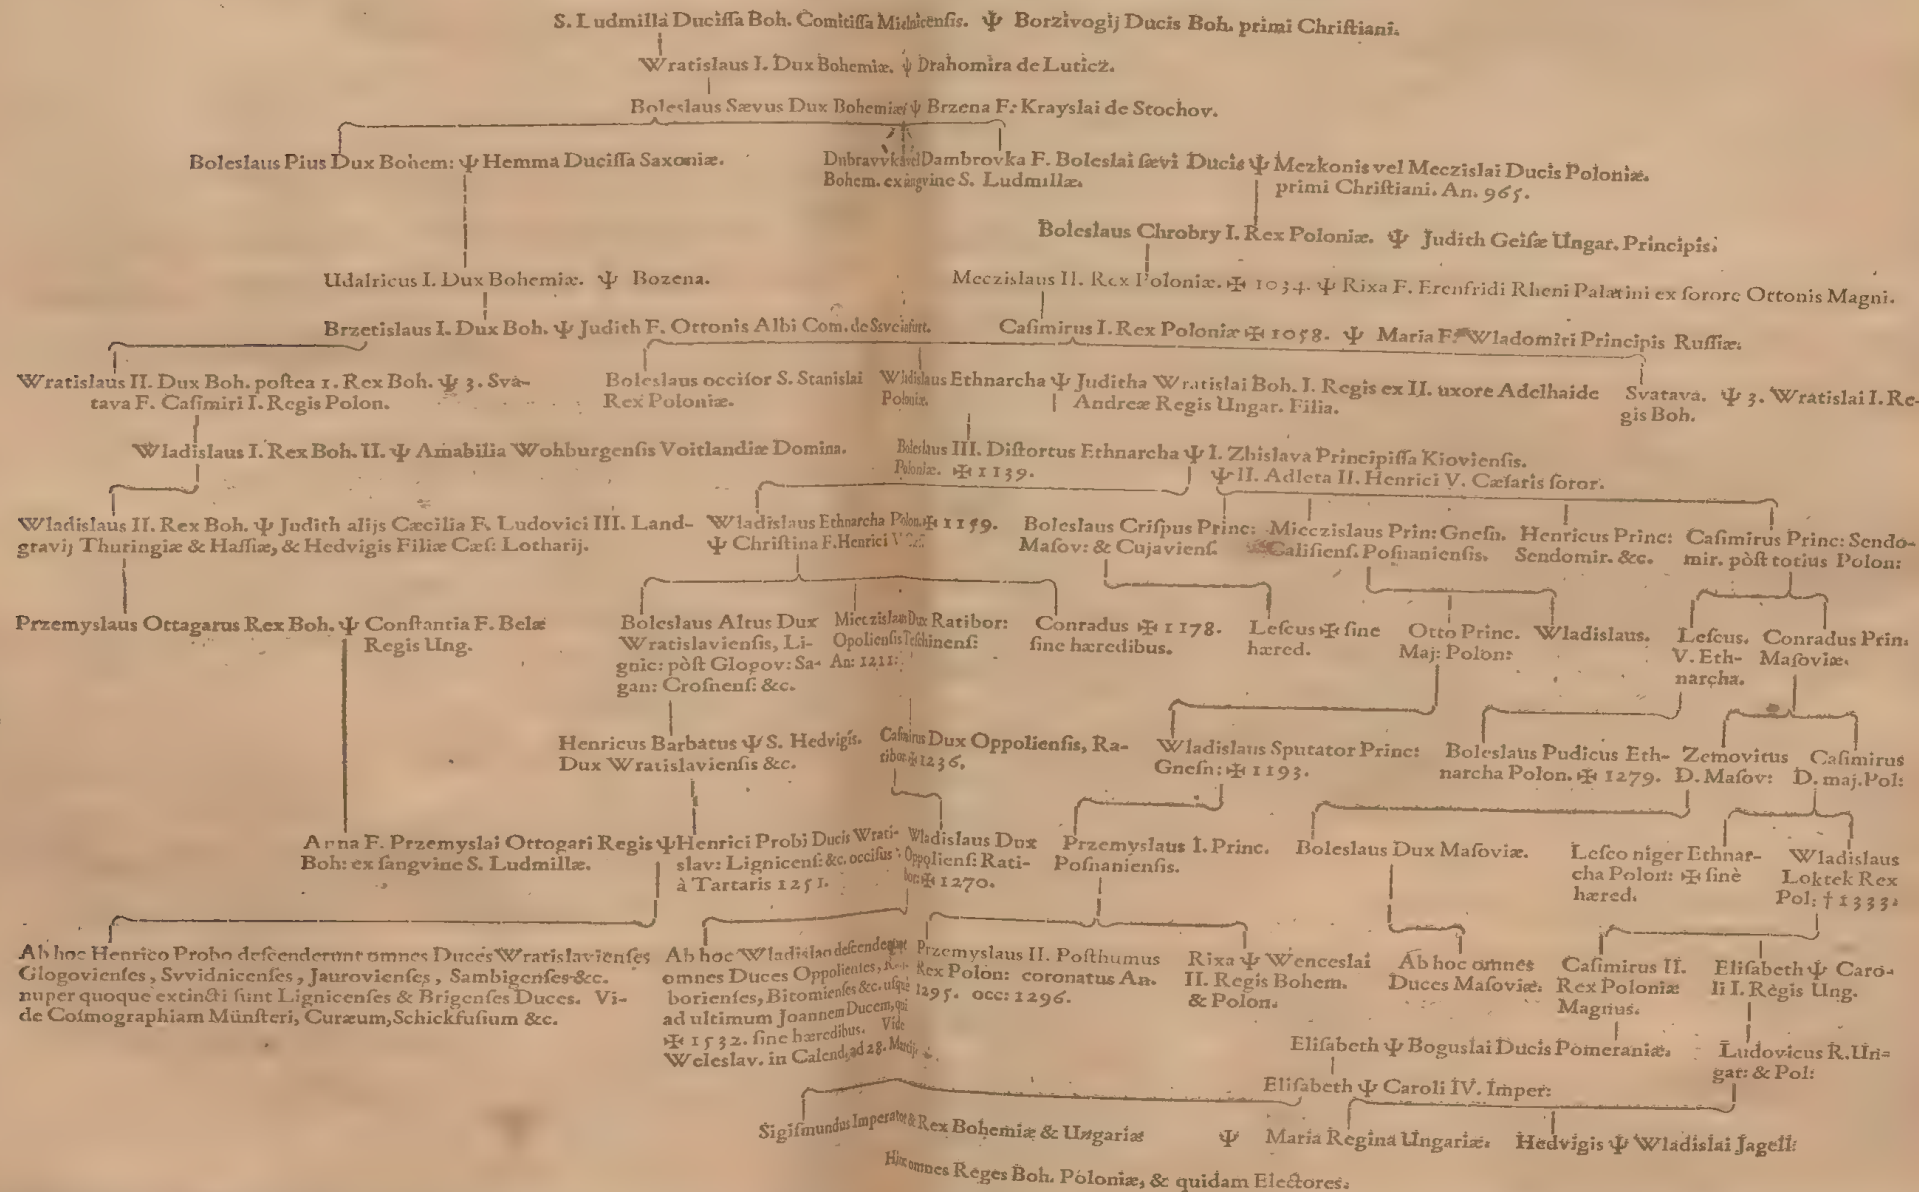 S. Ludmilla Duciſſa Boh. Comitiſſa Mielnicenſis. Ψ Borzivogij Ducis Boh. primi Chriſtiani.
Wratislaus I. Dux Bohemiæ. ψ Drahomira de Luticz.
Boleslaus Sævus Dux Bohemiæ ψ Brzena F: Krayslai de Stochov.
Boleslaus Pius Dux Bohem: Ψ Hemma Duciſſa Saxoniæ.
Dubravvka vel Dambrovka F. Boleslai ſævi Ducis Ψ Mezkonis vel Meczislai Ducis Poloniæ.
Bohem. ex ſangvine S. Ludmillæ.
primi Chriſtiani. An. 965.
Boleslaus Chrobry I. Rex Poloniæ. Ψ Judith Geiſæ Ungar. Principis.
Udalricus I. Dux Bohemiæ. Ψ Bozena.
Meczislaus II. Rex Poloniæ. ✠ 1034. Ψ Rixa F. Erenfridi Rheni Palatini ex ſorore Ottonis Magni.
Brzetislaus I. Dux Boh. Ψ Judith F. Ottonis Albi Com. de Ssveinfurt.
Caſimirus I. Rex Poloniæ ✠ 1058. Ψ Maria F. Wladomiri Principis Ruſſiæ.
Wratislaus II. Dux Boh. poſtea 1. Rex Boh. Ψ 3. Sva-
tava F. Caſimiri I. Regis Polon.
Boleslaus occiſor S. Stanislai
Rex Poloniæ.
Wladislaus Ethnarcha Ψ Juditha Wratislai Boh. I. Regis ex II. uxore Adelhaide
Poloniæ.
Andreæ Regis Ungar. Filia.
Svatava. Ψ 3. Wratislai I. Re-
gis Boh.
Wladislaus I. Rex Boh. II. Ψ Amabilia Wohburgenſis Voitlandiæ Domina.
Boleslaus III. Diſtortus Ethnarcha Ψ I. Zbislava Principiſſa Kiovienſis.
Poloniæ. ✠ 1139.
Ψ II. Adleta II. Henrici V. Cæſaris ſoror.
Wladislaus II. Rex Boh. Ψ Judith alijs Cæcilia F. Ludovici III. Land-
gravij Thuringiæ & Haſſiæ, & Hedvigis Filiæ Cæſ: Lotharij.
Wladislaus Ethnarcha Polon. ✠ 1159.
Ψ Chriſtina F. Henrici V
Boleslaus Criſpus Princ:
Maſov: & Cujavienſ.
Mieczislaus Prin: Gneſn.
Caliſienſ. Poſnanienſis.
Henricus Princ:
Sendomir. &c.
Caſimirus Princ: Sendo-
mir. pòſt totius Polon:
Przemyslaus Ottagarus Rex Boh. Ψ Conſtantia F. Belæ
Regis Ung.
Boleslaus Altus Dux
Wratislavienſis, Li-
gnic: pòſt Glogov: Sa-
gan: Croſnenſ: &c.
Mieczislaus Dux Ratibor:
Opolienſis Teſchinenſ:
An: 1211:
Conradus ✠ 1178.
ſine hæredibus.
Leſcus ✠ ſine
hæred.
Otto Princ.
Maj: Polon:
Wladislaus.
Leſcus.
V. Eth-
narcha.
Conradus Prin.
Maſoviæ.
Henricus Barbatus Ψ S. Hedvigis.
Dux Wratislavienſis &c.
Caſimirus Dux Oppolienſis, Ra-
tibor ✠ 1236.
Wladislaus Sputator Princ:
Gneſn: ✠ 1193.
Boleslaus Pudicus Eth-
narcha Polon. ✠ 1279.
Zemovitus
D. Maſov:
Caſimirus
D. maj. Pol:
Anna F. Przemyslai Ottogari Regis Ψ Henrici Probi Ducis Wrati-
Boh: ex ſangvine S. Ludmillæ.
slav: Lignicenſ: &c. occiſus
à Tartaris 1251.
Wladislaus Dux
Oppolienſ: Rati-
bor: ✠ 1270.
Przemyslaus I. Princ.
Poſnanienſis.
Boleslaus Dux Maſoviæ.
Leſco niger Ethnar-
cha Polon: ✠ ſinè
hæred.
Wladislaus
Loktek Rex
Pol: † 1333.
Ab hoc Henrico Probo deſcenderunt omnes Duces Wratislavienſes
Glogovienſes, Svvidnicenſes, Jaurovienſes, Sambigenſes &c.
nuper quoque extincti ſunt Lignicenſes & Brigenſes Duces. Vi-
de Coſmographiam Münſteri, Curæum, Schickfuſium &c.
Ab hoc Wladislao deſcenderunt
omnes Duces Oppolienſes, Rati-
borienſes, Bitomienſes &c. uſque
ad ultimum Joannem Ducem, qui
✠ 1532. ſine hæredibus. Vide
Weleslav. in Calend. ad 28. Martij.
Przemyslaus II. Poſthumus
Rex Polon: coronatus An.
1295. occ: 1296.
Rixa Ψ Wenceslai
II. Regis Bohem.
& Polon.
Ab hoc omnes
Duces Maſoviæ.
Caſimirus II.
Rex Poloniæ
Magnus.
Eliſabeth Ψ Caro-
li I. Regis Ung.
Eliſabeth Ψ Boguslai Ducis Pomeraniæ.
Ludovicus R. Un-
gar: & Pol:
Eliſabeth Ψ Caroli IV. Imper:
Sigiſmundus Imperator & Rex Bohemiæ & Ungariæ Ψ Maria Regina Ungariæ.
Hedvigis Ψ Wladislai Jagell:
Hinc omnes Reges Boh. Poloniæ, & quidam Electores.